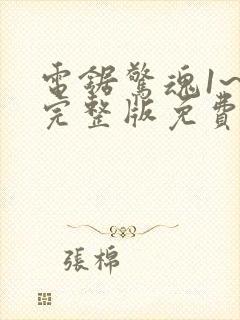 電鋸驚魂1~
完整版免費
張棉